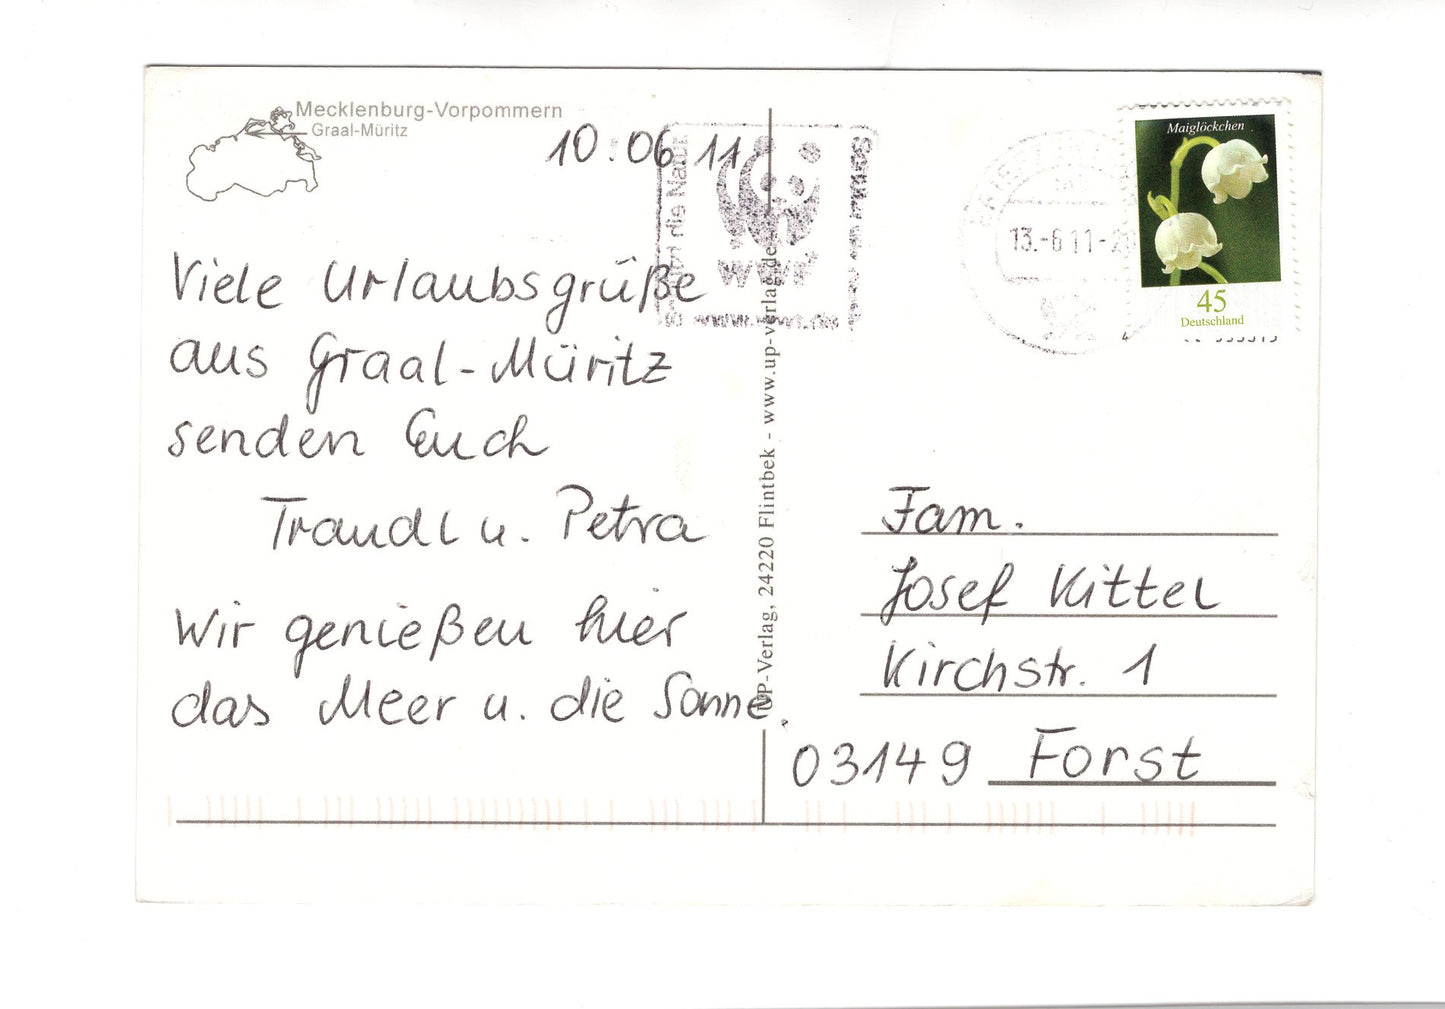 Mecklenburg-Vorpommern
Graal-Müritz
10.06.11
Viele Urlaubsgrüße
aus Graal-Müritz
senden Euch
Traudl u. Petra
Wir genießen hier
das Meer u. die Sonne.
UP-Verlag, 24220 Flintbek - www.up-verlag.de
die Natur
WWF
13.-6.11-2
Maiglöckchen
45
Deutschland
Fam.
Josef Kittel
Kirchstr. 1
03149 Forst